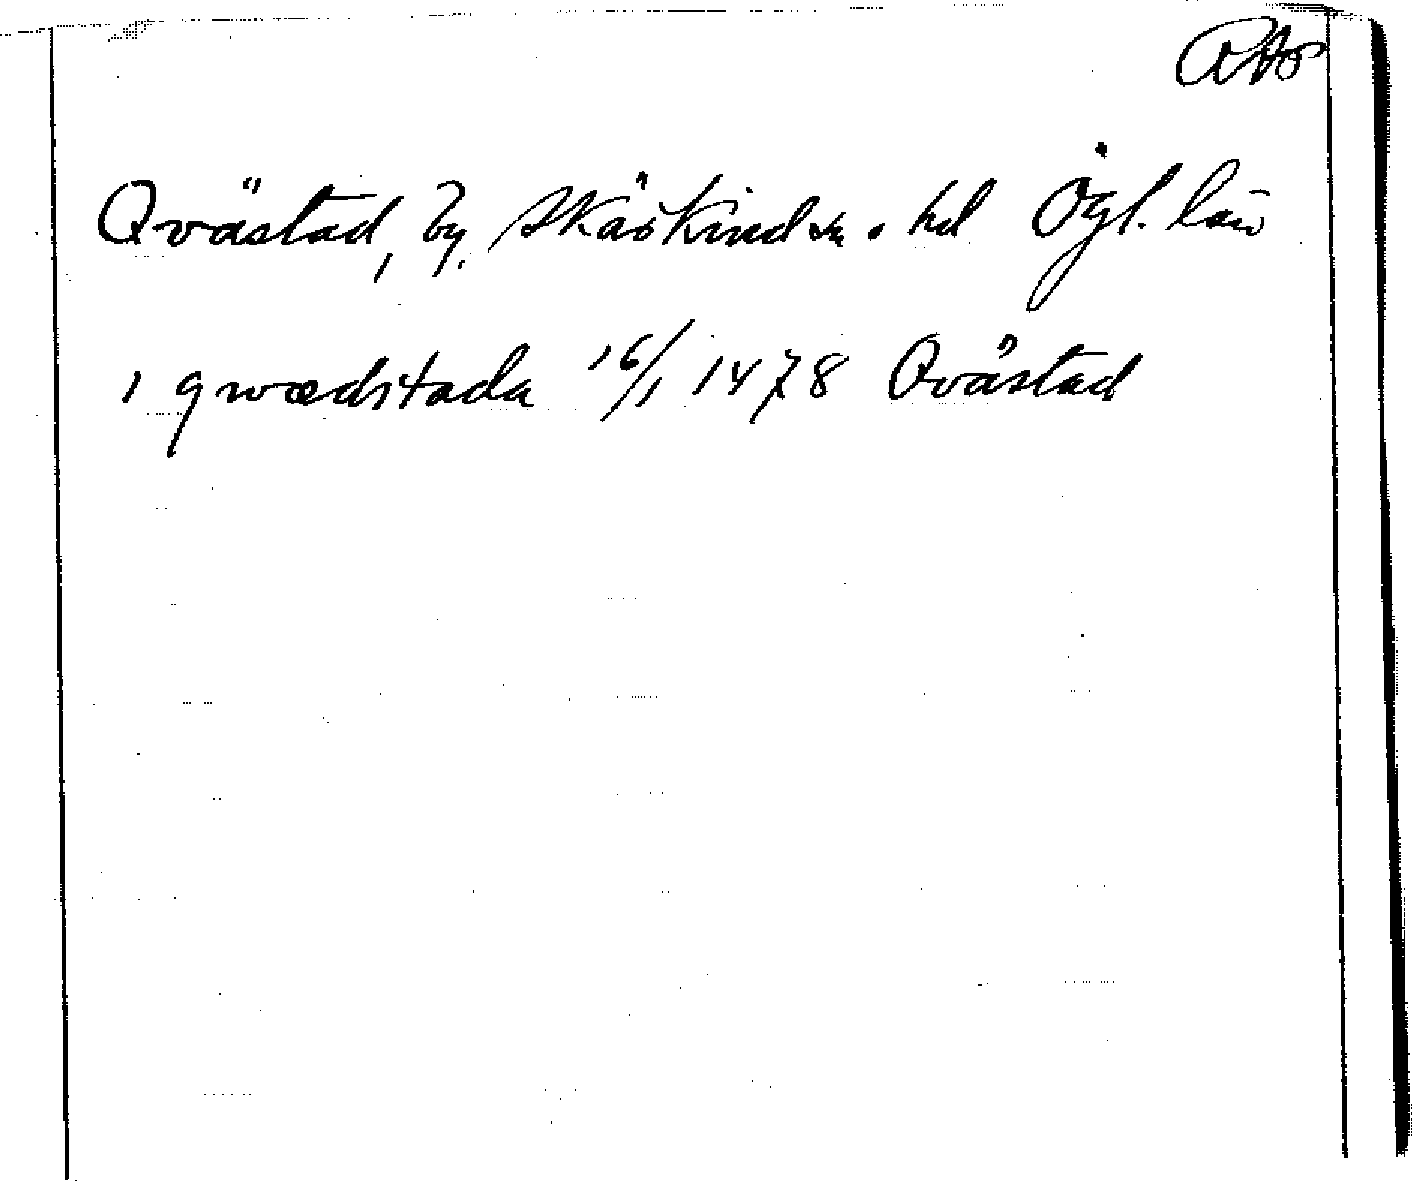 Qvästad, by, Skärkind sn. o. hd Ögl. län
i qwædstada 16/1 1478 Qvästad